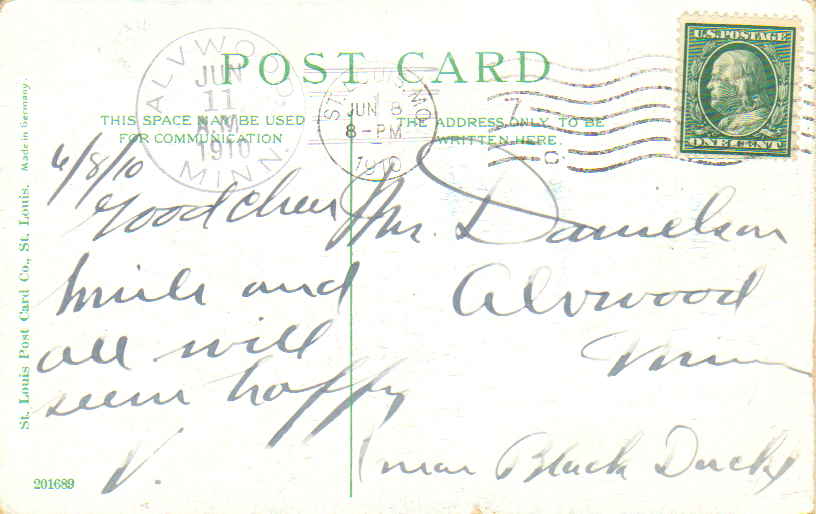 POST CARD
THIS SPACE MAY BE USED
FOR COMMUNICATION
THE ADDRESS ONLY TO BE
WRITTEN HERE
ALVWOOD
JUN
11
A.M.
1910
MINN.
ST. LOUIS, MO
1
JUN 8
8-PM
1910
7
C
U.S. POSTAGE
ONE CENT
6/8/10
Good cheer
smile and
all will
seem happy
V.
Mr. Danielson
Alvwood
Minn
(near Black Duck)
St. Louis Post Card Co., St. Louis. Made in Germany.
201689